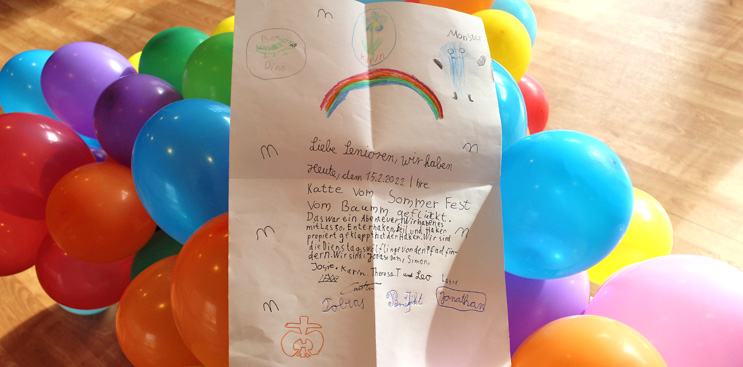 Dino
Karin
Monster
Liebe Senioren, wir haben
Heute, dem 15.2.2022 Ihre
Katte vom Sommer Fest
vom Baumm geflückt.
Das war ein Abenteuer! Wir haben es
mit Lasso, Enterhaken, Seil und Haken
propiert geklappt hat der Haken. Wir sind
die Dienstagswölflinge von den Pfadfin-
dern. Wir sind: Simon,
Josie, Karin, Theresa T und Leo
Tobias Jonathan